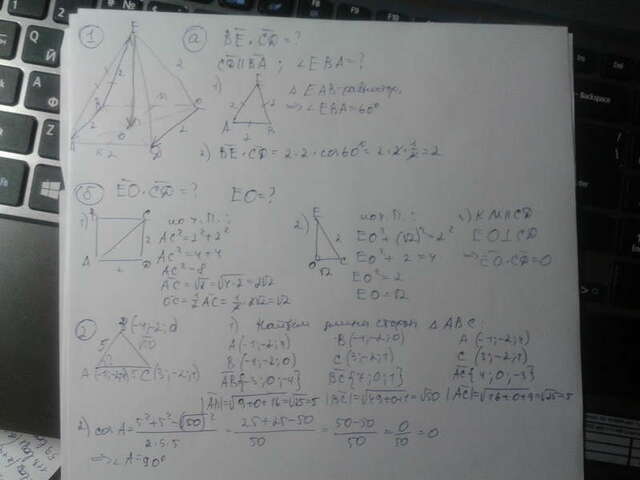 1
а) BE · CD = ?
CD ∥ BA ; ∠EBA = ?
1)
△ EAB - равност.
⇒ ∠EBA = 60°
2) BE · CD = 2 · 2 · cos 60° = 2 · 2 · 1/2 = 2
б) EO · CD = ? EO = ?
1)
по т. П. :
AC² = 2² + 2²
AC² = 4 + 4
AC² = 8
AC = √8 = √4·2 = 2√2
OC = 1/2 AC = 1/2 · 2√2 = √2
2)
по т. П. :
EO² + (√2)² = 2²
EO² + 2 = 4
EO² = 2
EO = √2
KM ∥ CD
EO ⊥ CD
⇒ EO · CD = 0
2
1) Найдем длины сторон △ ABC :
A (-1; -2; 4) B (-4; -2; 0) A (-1; -2; 4)
B (-4; -2; 0) C (3; -2; 1) C (3; -2; 1)
AB {-3; 0; -4} BC {7; 0; 1} AC {4; 0; -3}
|AB| = √9+0+16 = √25 = 5 |BC| = √49+0+1 = √50 |AC| = √16+0+9 = √25 = 5
2) cos A = 5² + 5² - (√50)² / 2·5·5 = 25+25-50 / 50 = 50-50 / 50 = 0/50 = 0
⇒ ∠A = 90°
Backspace
Enter